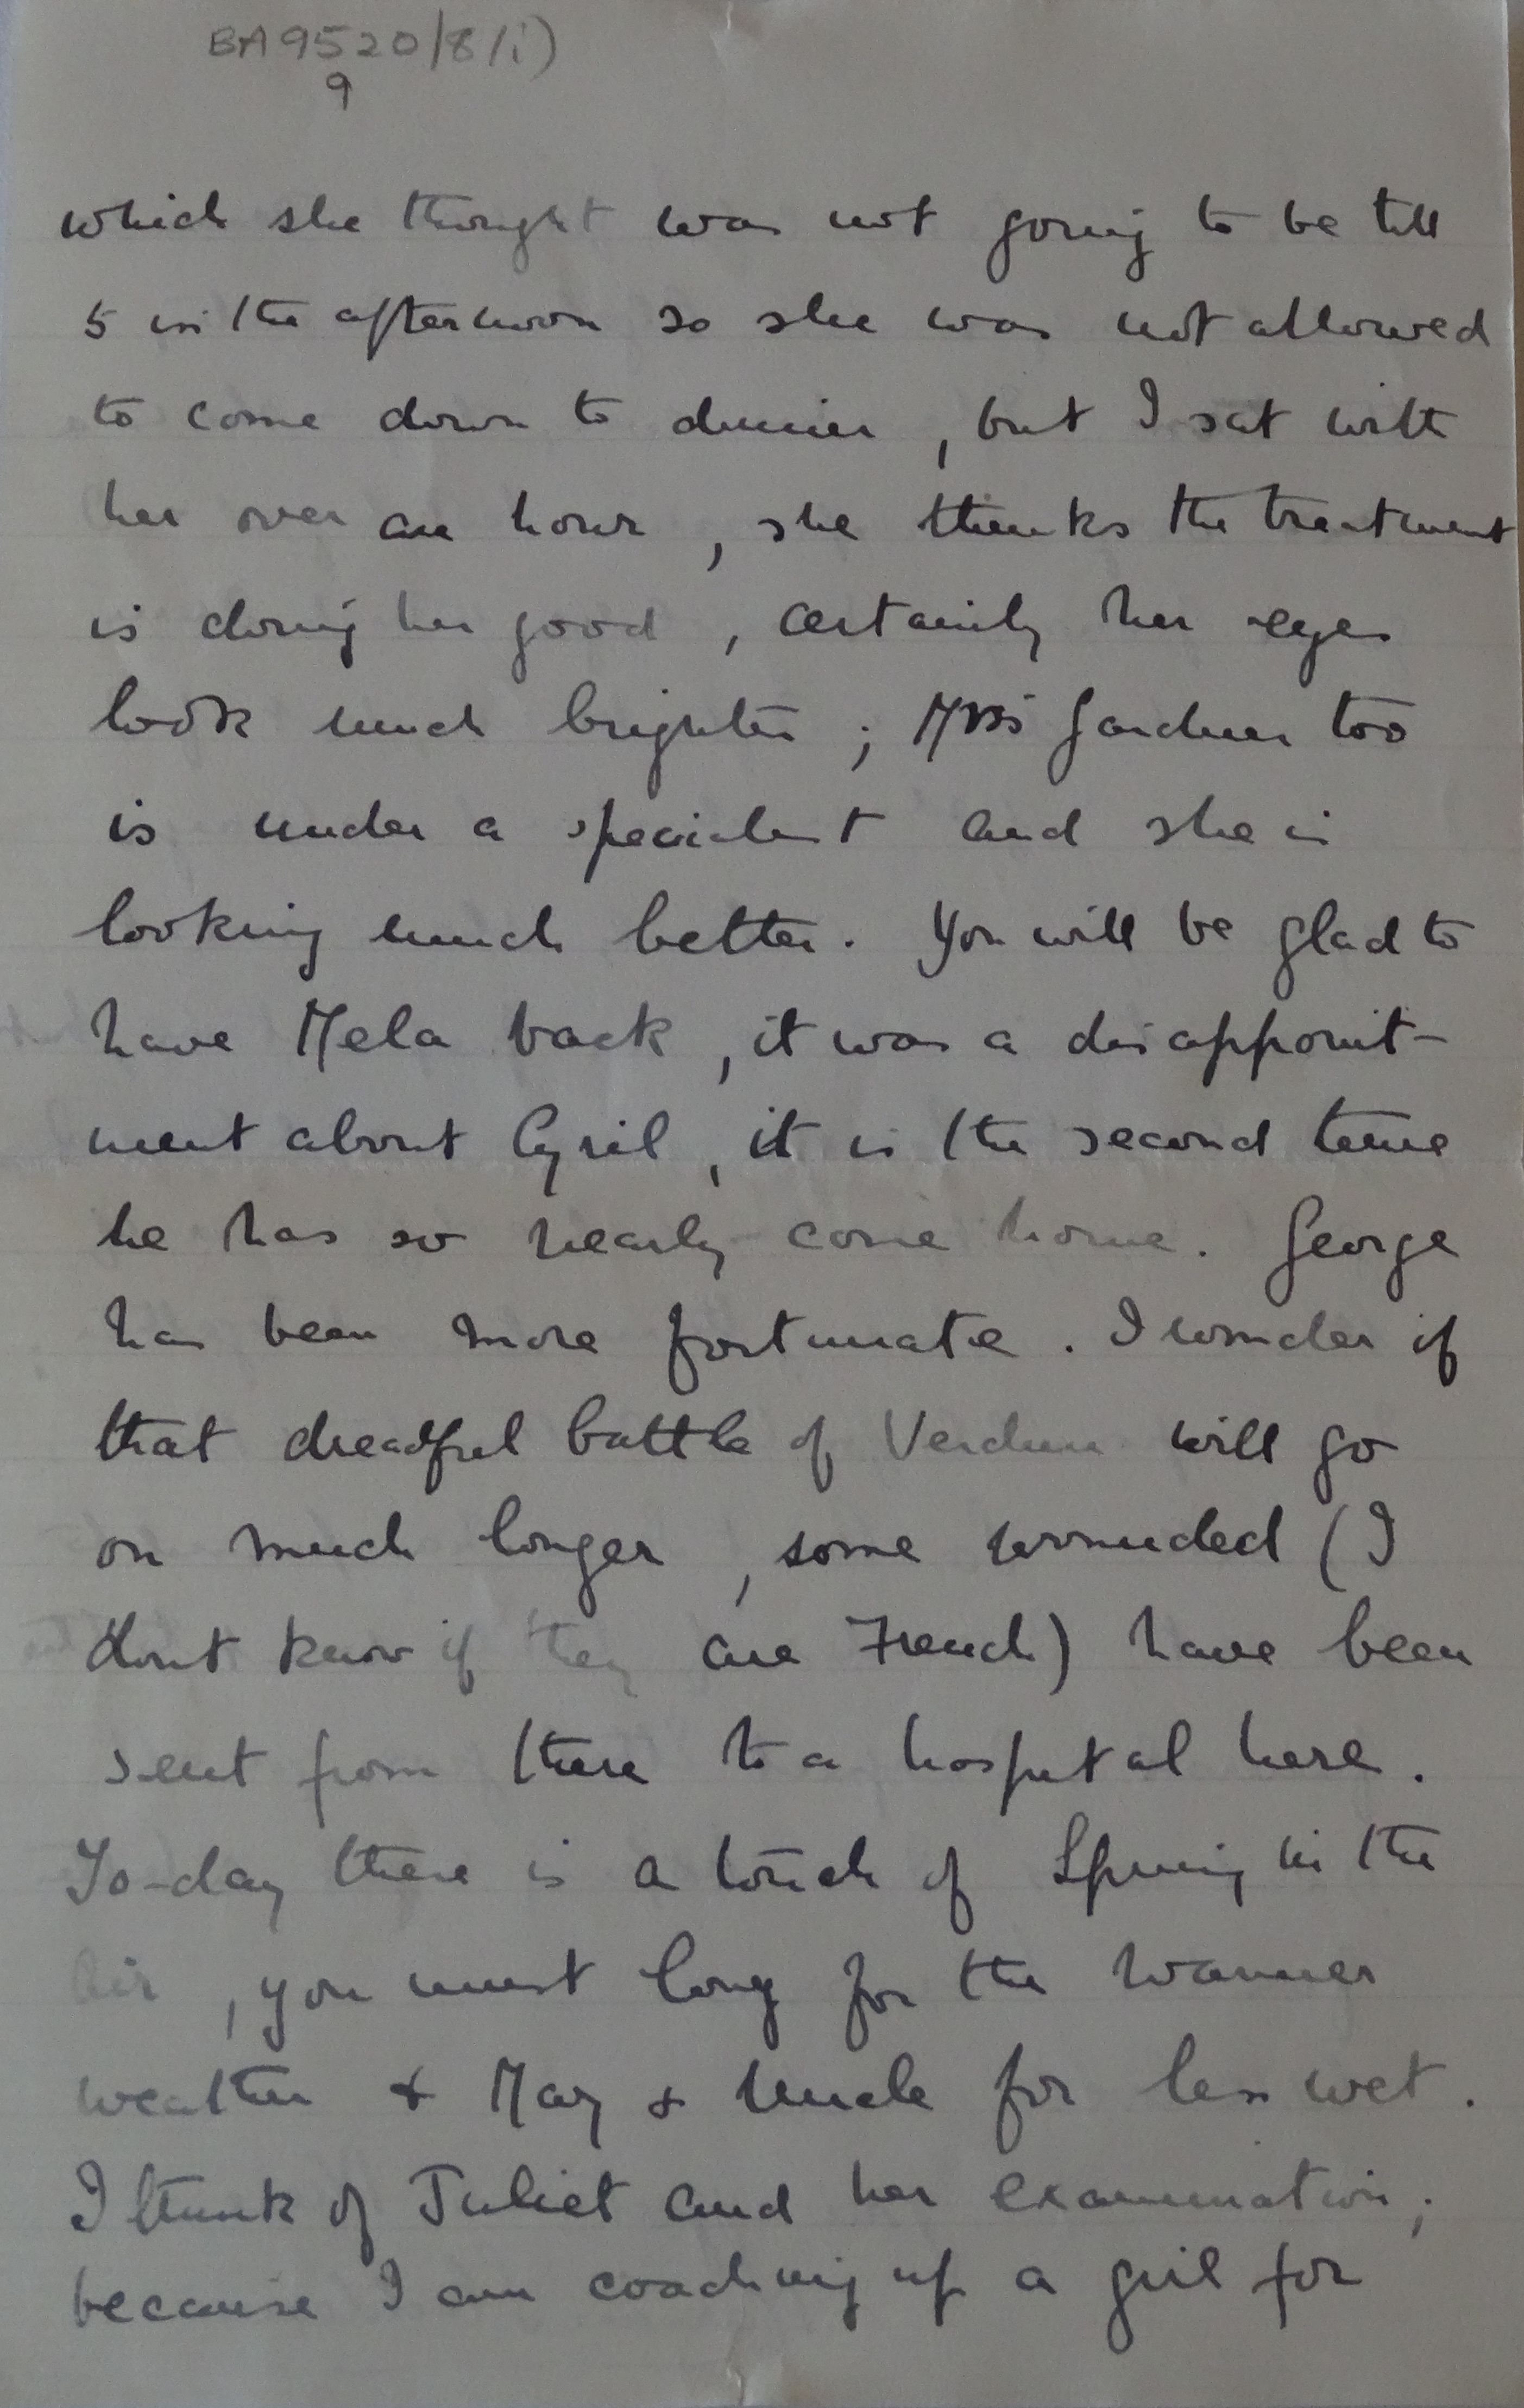 BA9520/8/i)
9
which she thought was not going to be till
5 in the afternoon so she was not allowed
to come down to dinner, but I sat with
her over an hour, she thinks the treatment
is doing her good, certainly her eyes
look much brighter; Mrs Gardner too
is under a specialist and she is
looking much better. You will be glad to
have Mela back, it was a disappoint-
ment about Cyril, it is the second time
he has so nearly come home. George
has been more fortunate. I wonder if
that dreadful battle of Verdun will go
on much longer, some wounded (I
dont know if they are French) have been
sent from there to a hospital here.
To-day there is a touch of Spring in the
air, you must long for the warmer
weather & May & Uncle for less wet.
I think of Juliet and her examination;
because I am coaching up a girl for